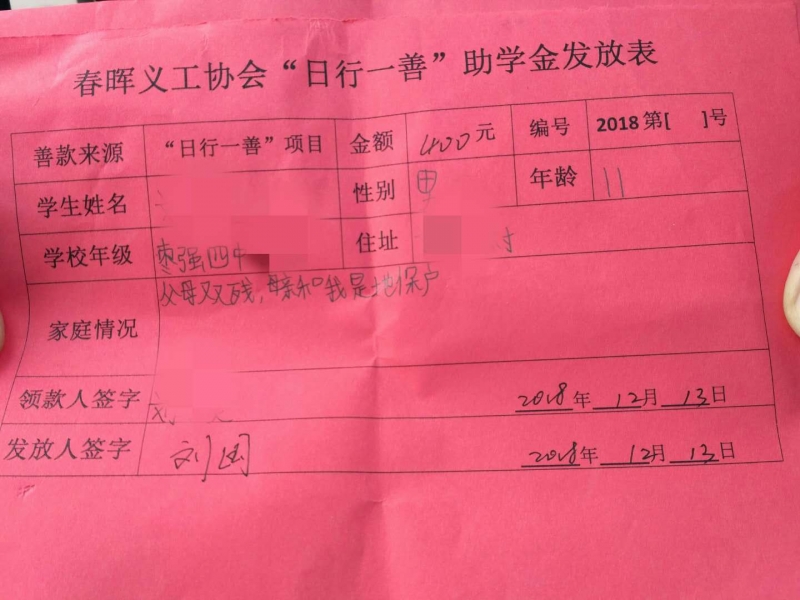 春晖义工协会“日行一善”助学金发放表
善款来源 “日行一善”项目 金额 400元 编号 2018第[ ]号
学生姓名 性别 男 年龄 11
学校年级 枣强四中 住址 村
家庭情况 父母双残,母亲和我是地保户
领款人签字 刘 2018年 12月 13日
发放人签字 刘国 2018年 12月 13日